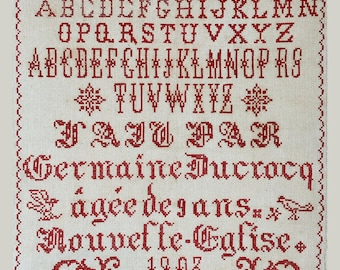 ABCDEFGHIJKLMN
OPQRSTUVXYZ
ABCDEFGHIJKLMNOPRS
TUVWXYZ
FAIT PAR
Germaine Ducrocq
âgée de 9 ans
Nouvelle-Eglise
1907